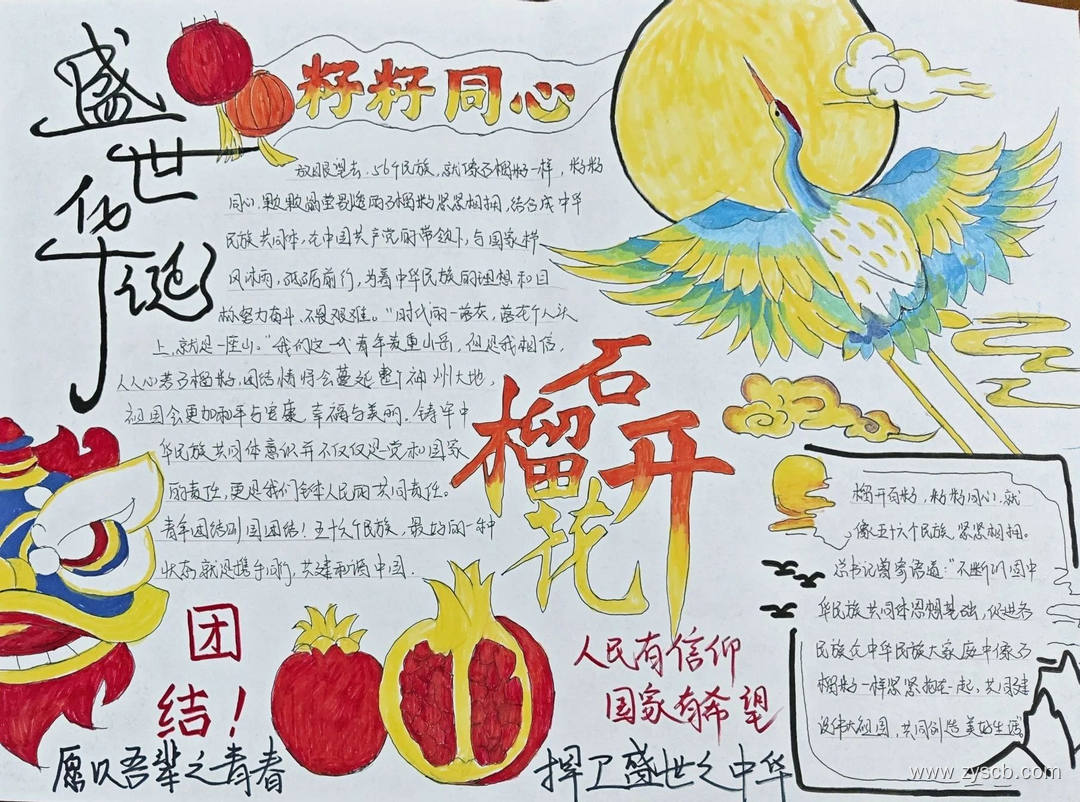 盛世华诞
籽籽同心
放眼望去，56个民族，就像石榴籽一样，籽籽
同心，颗颗晶莹剔透的石榴籽紧紧相拥，结合成中华
民族共同体，在中国共产党的带领下，与国家栉
风沐雨，砥砺前行，为着中华民族的理想和目
标努力奋斗，不畏艰难。“时代的一落灰，落在个人头
上，就是一座山。”我们这一代青年责重山岳，但是我相信，
人人心若石榴籽，团结情将会蔓延整个神州大地，
祖国会更加和平与安康，幸福与美丽。铸牢中
华民族共同体意识并不仅仅是党和国家
的责任，更是我们全体人民的共同责任。
青年团结则国团结！五十六个民族，最好的一种
状态就是携手同行，共建和谐中国．
石
榴开
花
榴开百籽，籽籽同心，就
像五十六个民族，紧紧相拥。
总书记曾寄语道：“不断巩固中
华民族共同体思想基础，促进各
民族在中华民族大家庭中像石
榴籽一样紧紧抱在一起，共同建
设伟大祖国，共同创造美好生活
团
结！
人民有信仰
国家有希望
愿以吾辈之青春
捍卫盛世之中华
www.zyscb.com